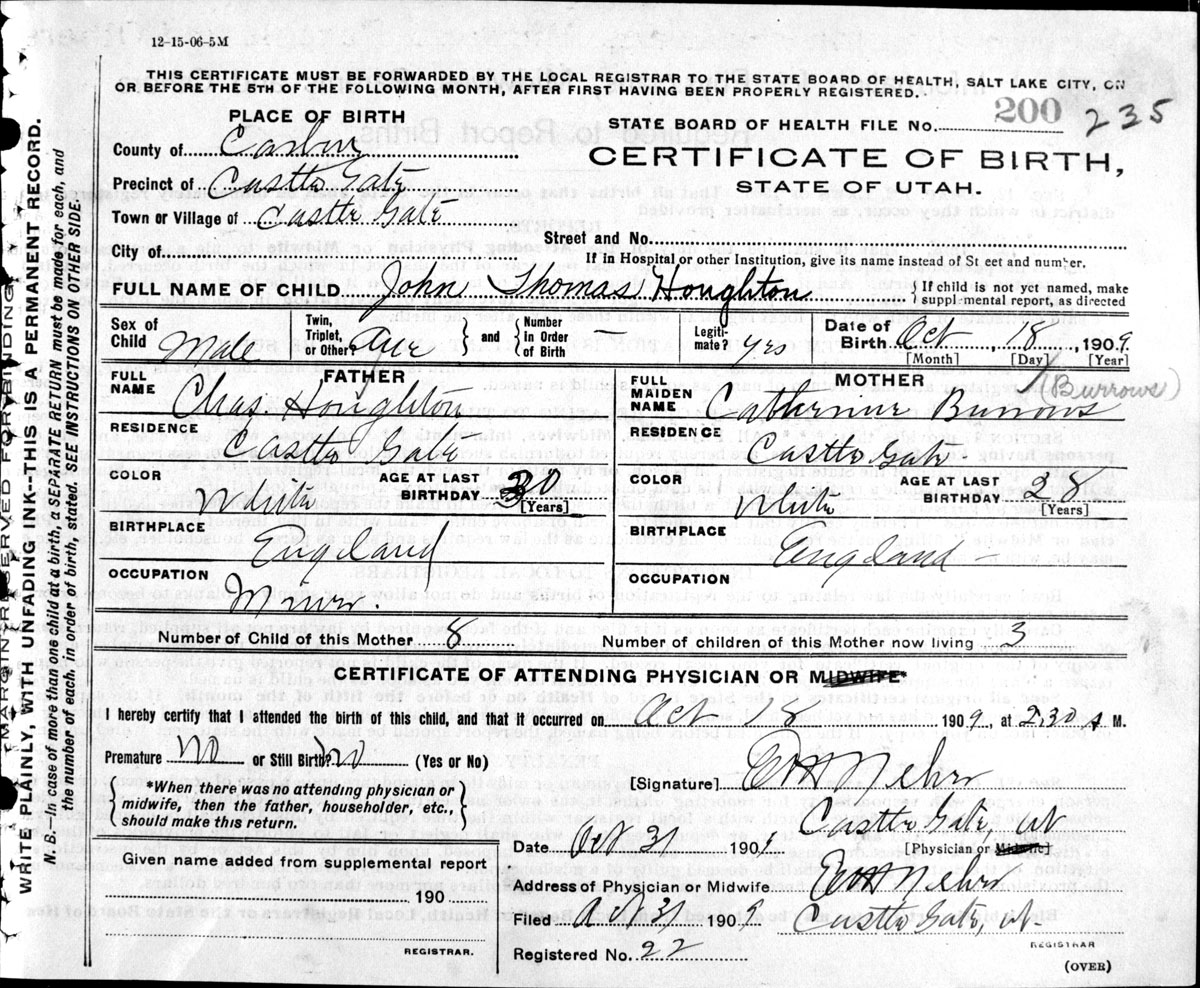 12-15-06-5M
THIS CERTIFICATE MUST BE FORWARDED BY THE LOCAL REGISTRAR TO THE STATE BOARD OF HEALTH, SALT LAKE CITY, ON
OR BEFORE THE 5TH OF THE FOLLOWING MONTH, AFTER FIRST HAVING BEEN PROPERLY REGISTERED.
MARGIN RESERVED FOR BINDING
WRITE PLAINLY, WITH UNFADING INK--THIS IS A PERMANENT RECORD.
N.B.--In case of more than one child at a birth, a SEPARATE RETURN must be made for each, and
the number of each, in order of birth, stated. SEE INSTRUCTIONS ON OTHER SIDE.
PLACE OF BIRTH
County of Carbon
Precinct of Castle Gate
Town or Village of Castle Gate
City of
STATE BOARD OF HEALTH FILE No. 200 235
CERTIFICATE OF BIRTH,
STATE OF UTAH.
Street and No.
If in Hospital or other Institution, give its name instead of St eet and number.
FULL NAME OF CHILD John Thomas Houghton { If child is not yet named, make
supplemental report, as directed
Sex of Child Male
Twin, Triplet, or Other?
} and { Number in Order of Birth –
Legiti-mate? yes
Date of Birth Oct 18, 1909
[Month] [Day] [Year]
FATHER
FULL NAME Chas. Houghton
RESIDENCE Castle Gate
COLOR White
AGE AT LAST BIRTHDAY 30
[Years]
BIRTHPLACE England
OCCUPATION Miner.
MOTHER
(Burrows)
FULL MAIDEN NAME Catherine Burrows
RESIDENCE Castle Gate
COLOR White
AGE AT LAST BIRTHDAY 28
[Years]
BIRTHPLACE England –
OCCUPATION
Number of Child of this Mother 8
Number of children of this Mother now living 3
CERTIFICATE OF ATTENDING PHYSICIAN OR MIDWIFE*
I hereby certify that I attended the birth of this child, and that it occurred on Oct 18 1909, at 2.30 A M.
Premature No or Still Birth? No (Yes or No)
{ *When there was no attending physician or
midwife, then the father, householder, etc.,
should make this return. }
[Signature]
Castle Gate, Ut
[Physician or Midwife]
Date Oct 31 1909.
Address of Physician or Midwife.
Filed Oct 31 1909
Castle Gate, Ut.
REGISTRAR
Registered No. 22
Given name added from supplemental report
190
REGISTRAR.
(OVER)